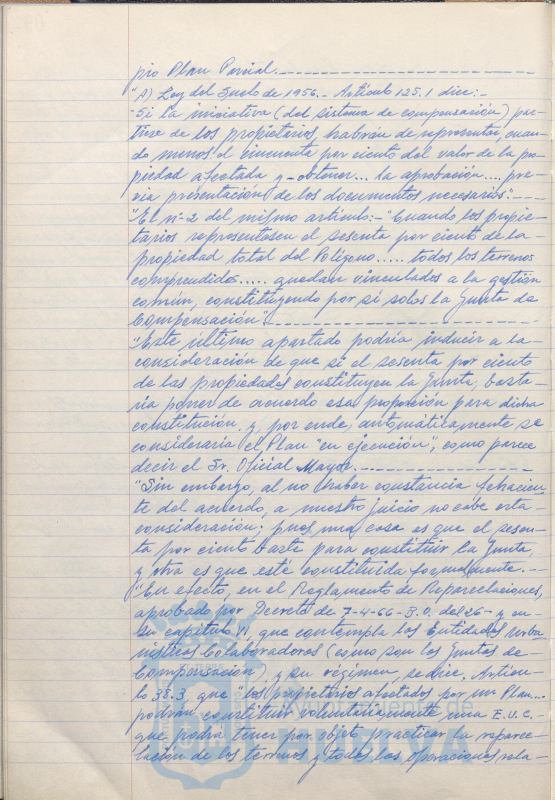 pio Plan Parcial.-
"A) Ley del Suelo de 1956.- Artículo 125.1 dice:-
-Si la iniciativa (del sistema de compensación) par-
tiese de los propietarios, habrán de representar, cuan-
do menos el cincuenta por ciento del valor de la pro-
piedad afectada y-obtener... la aprobación.... pre-
via presentación de los documentos necesarios".-
"El nº-2 del mismo artículo:- "Cuando los propie-
tarios representasen el sesenta por ciento de la-
propiedad total del Polígono..... todos los terrenos
comprendidos..... quedan vinculados a la gestión
común, constituyendo por sí solos la Junta de
Compensación".-
"Este último apartado podría inducir a la-
consideración de que si el sesenta por ciento
de las propiedades constituyen la Junta, basta-
ría poner de acuerdo esa proporción para dicha
constitución y, por ende, automáticamente se
consideraría el Plan "en ejecución", como parece
decir el Sr. Oficial Mayor.-
"Sin embargo, al no haber constancia fehacien-
te del acuerdo, a nuestro juicio no cabe esta-
consideración; pues una cosa es que el sesen-
ta por ciento baste para constituir la Junta,
y otra es que esté constituida formalmente.-
"En efecto, en el Reglamento de Reparcelaciones,
aprobado por Decreto de 7-4-66-B.O. del 26- y en-
su capítulo VI, que contempla las Entidades Urba-
nísticas Colaboradoras (como son las Juntas de-
Compensación), y su régimen, se dice, Artícu-
lo 38.3, que "los propietarios afectados por un Plan...
podrán constituir voluntariamente una E.U.C.-
que podrá tener por objeto practicar la reparce-
lación de los terrenos y todas las operaciones rela-
Ayuntamiento de
HUELVA